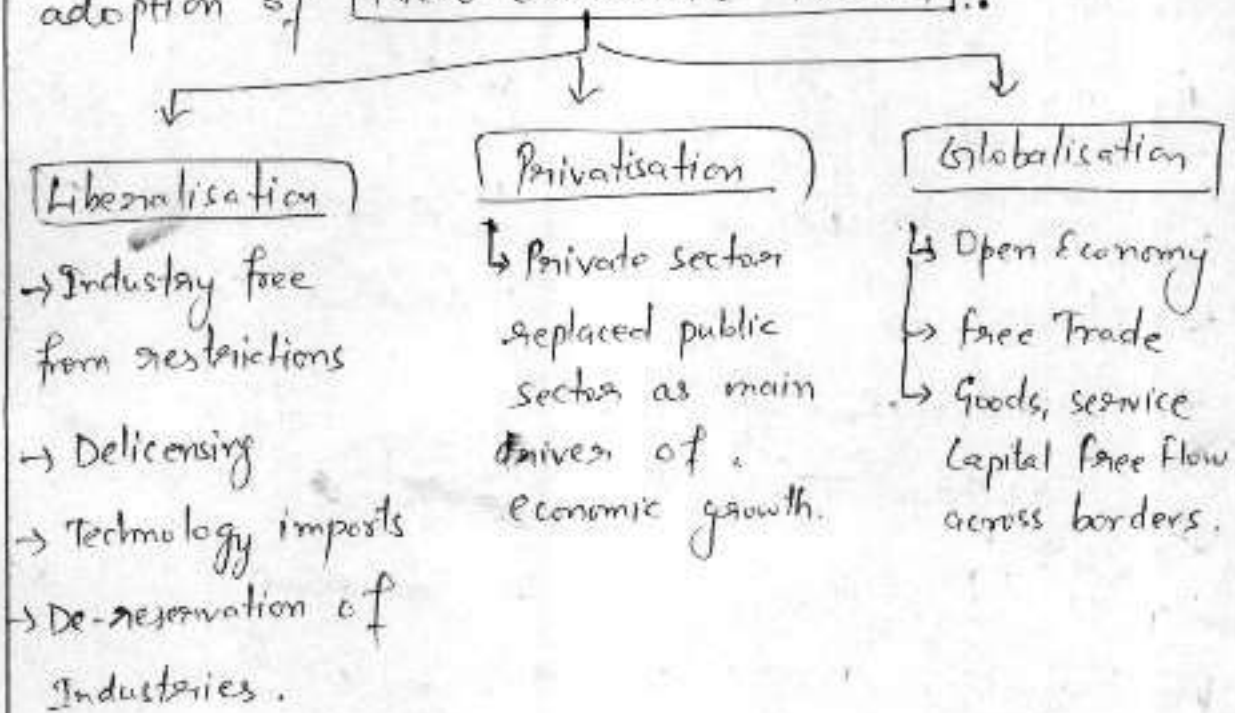 adoption of
Liberalisation
→ Industry free
from restrictions
→ Delicensing
→ Technology imports
→ De-reservation of
Industries.
Privatisation
↳ Private sector
replaced public
sector as main
driver of .
economic growth.
Globalisation
↳ Open Economy
↳ free Trade
↳ Goods, service
Capital free flow
across borders.